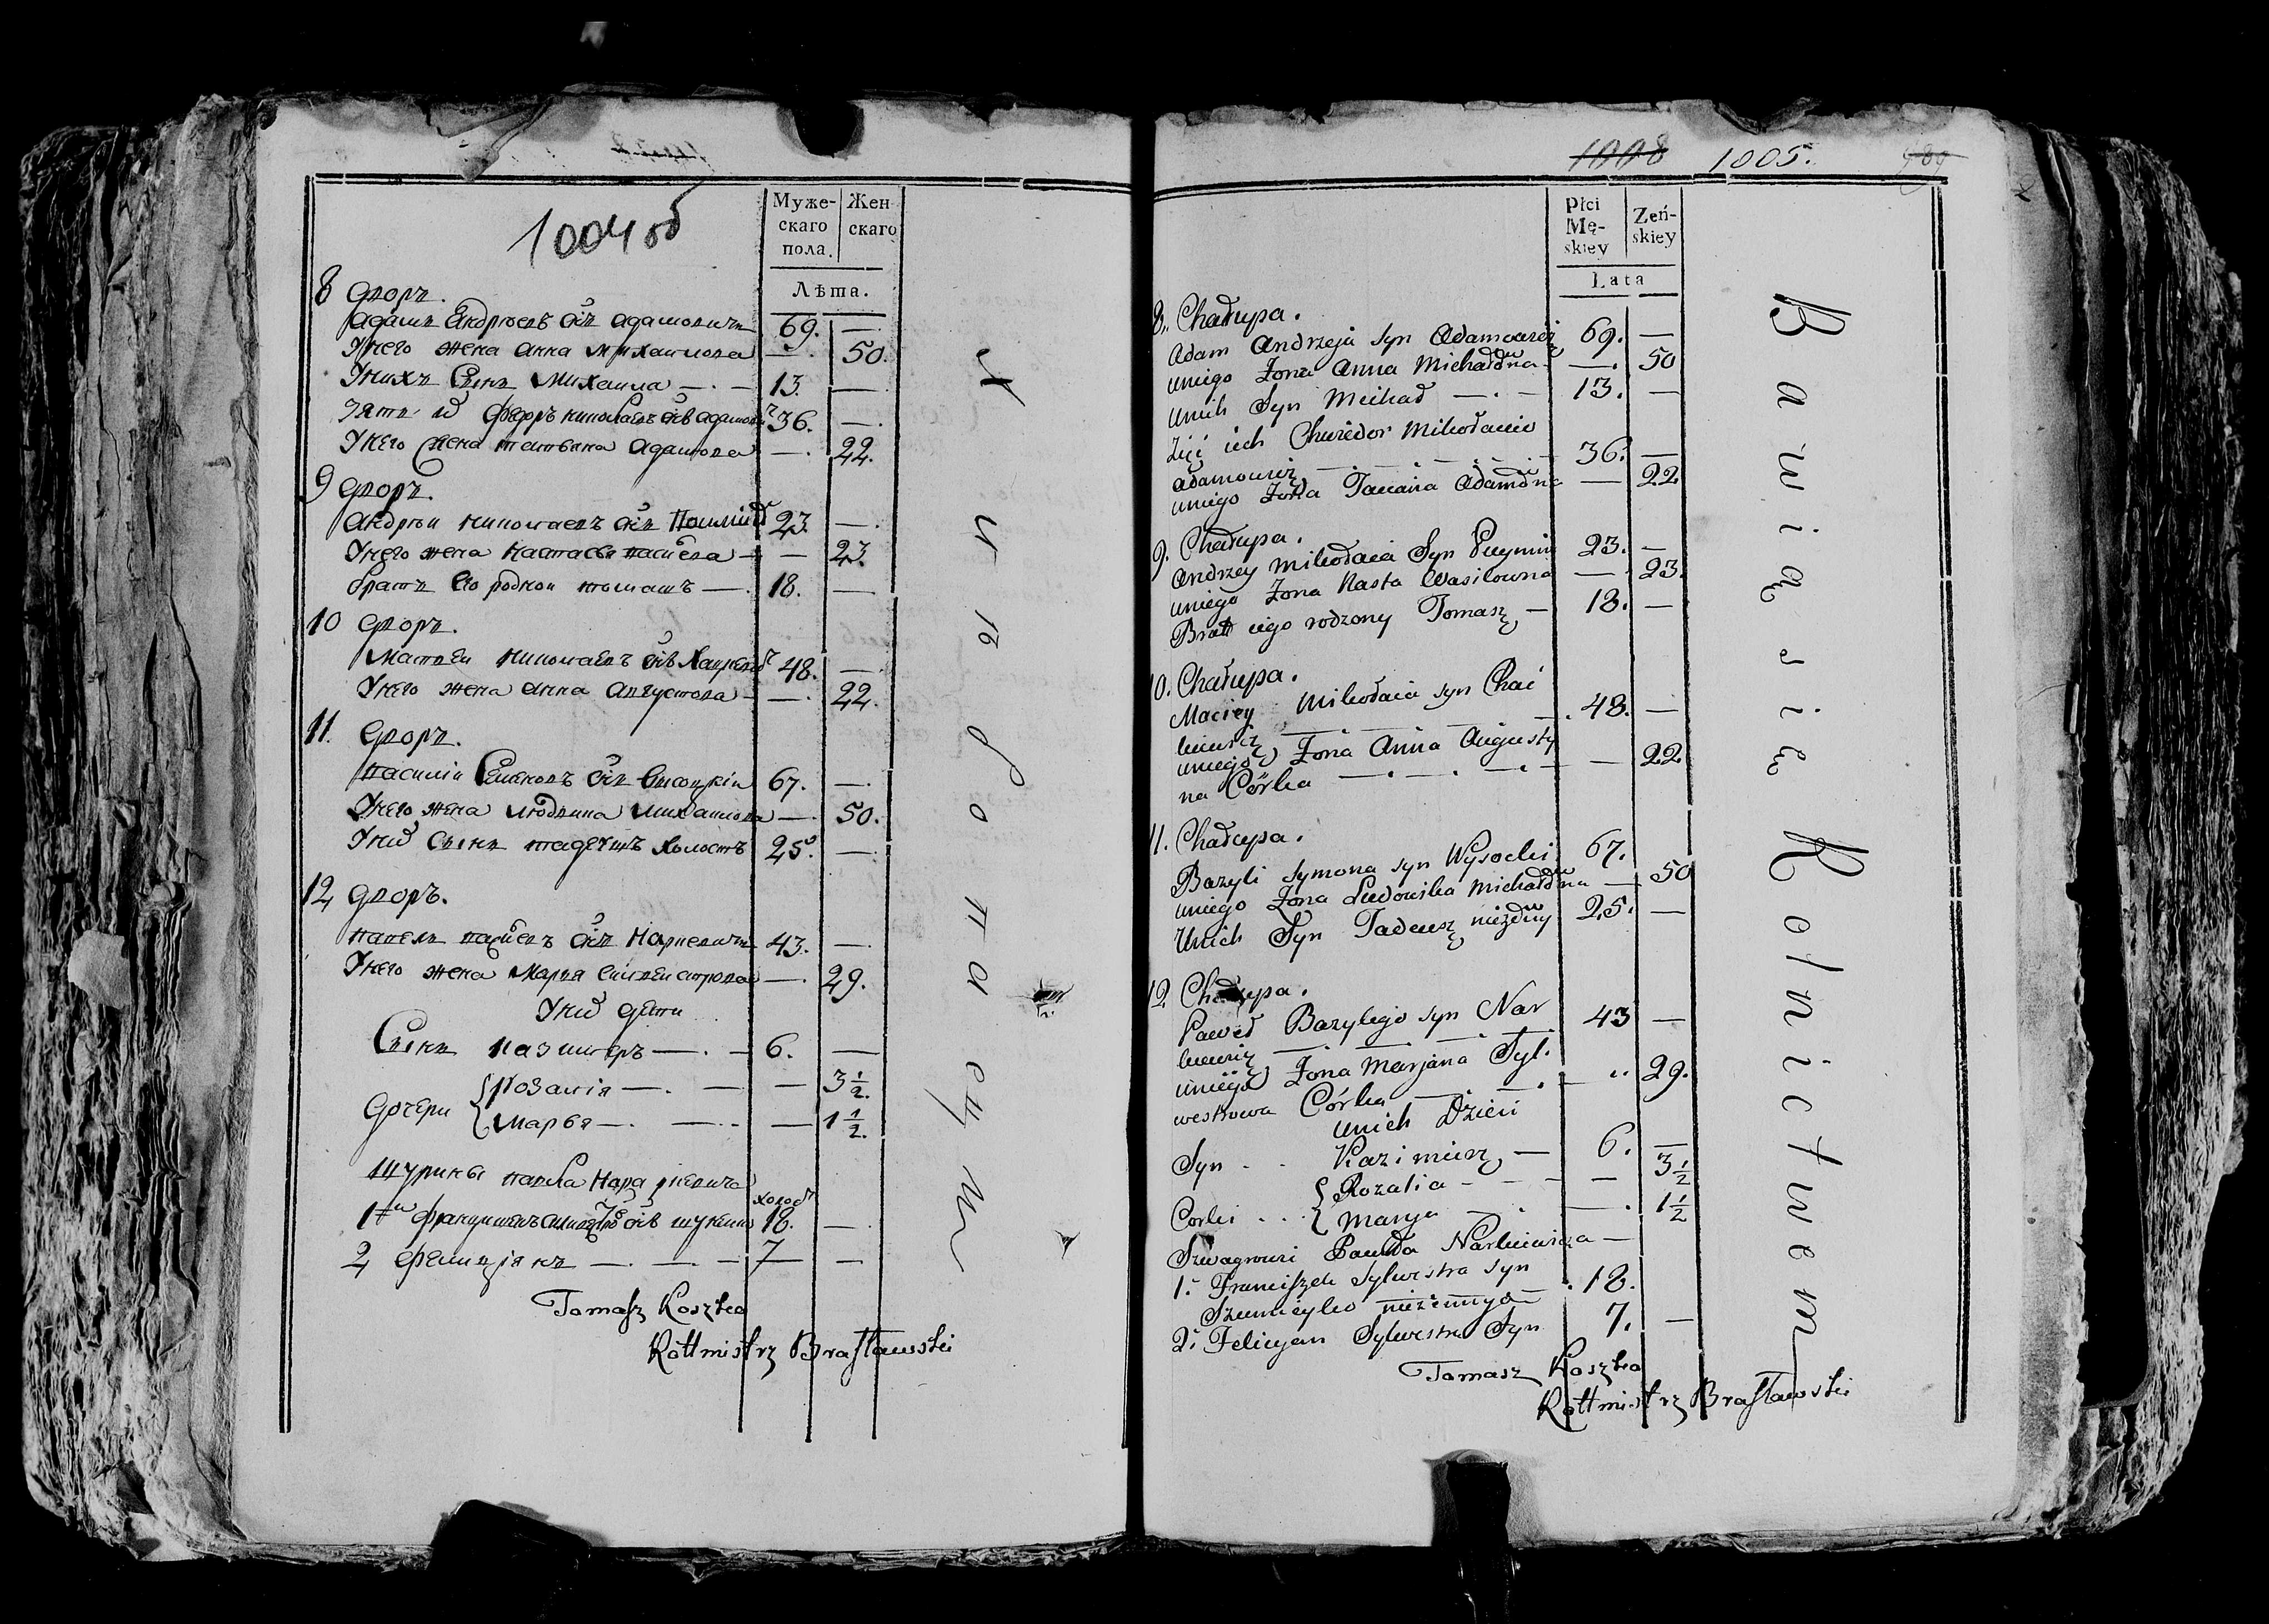 1004 об
Муже-
скаго
пола.
Жен
скаго
Лѣта.
8 Дворъ.
Адамъ Андреевъ сн҃ъ Адамовичъ 69. —
У него жена Анна Михайлова — 50.
У нихъ Сынъ Михаила — 13. —
Зять их Федоръ Николаевъ сн҃ъ Адамови 36. —
У него жена Татьяна Адамова — 22.
9 Дворъ.
Андрей Николаевъ сн҃ъ 23. —
У него жена Настасья Васильева — 23.
Братъ его родной Томашъ — 18. —
10 Дворъ.
Матвей Николаевъ сн҃ъ 48. —
У него жена Анна Августова — 22.
11. Дворъ.
Василий Семеновъ сн҃ъ Высоцкій 67. —
У него жена Людвика Михайлова — 50.
У них Сынъ Тадеушъ холостъ 25. —
12 Дворъ.
Павелъ Васильевъ сн҃ъ Наркевичъ 43. —
У него жена Марья Сильвестрова — 29.
У них дети
Сынъ Казимеръ — 6. —
Дочери { Розалія — — 3 1/2.
Марья — — 1 1/2.
Шурины Павла Наркевича
холост
1й Францишекъ 18. —
2 Фелиціянъ — 7 —
Tomasz Koszko
Rottmistrz Brasławski
Х л ѣ б о п а ш ц ы
1008 1005. 989
Płci
Mę-
skiey
Zeń-
skiey
Lata
8. Chałupa.
Adam Andrzeja syn Adamowicz 69. —
uniego Żona Anna Michałówna — 50
unich Syn Michał — 13. —
Zięć ich Chwiedor Mikołaiia
Adamowicz — 36. —
uniego Żona Taciana Adamówna — 22
9. Chałupa.
Andrzey Mikołaia Syn 23. —
uniego Żona Nasta Wasilowna — 23.
Bratt iego rodzony Tomasz — 18. —
10. Chałupa.
Maciey Mikołaia syn Chai
kiewicz — 48. —
uniego Żona Anna Augusty
na Córka — 22
11. Chałupa.
Bazyli Symona syn Wysocki 67.
uniego Żona Ludowika Michałówna — 50
Unich Syn Tadeusz nieżeny 25. —
12. Chałupa.
Paweł Bazylego syn Nar
kiewicz — 43 —
uniego Żona Marjana Syl.
westrowa Córka — 29.
unich Dzieci
Syn . . Kazimierz — 6. —
{ Rozalia — — 3 1/2
Corki . . { Marya — 1 1/2
Szwagrowi Pawła Narkiewicza —
1. Franciszek Sylwestra syn
Szumieyko nieżennyi 18.
2. Felicyan Sylwestra Syn 7. —
Tomasz Koszko
Rottmistrz Brasławski
Bawią się Rolnictwem